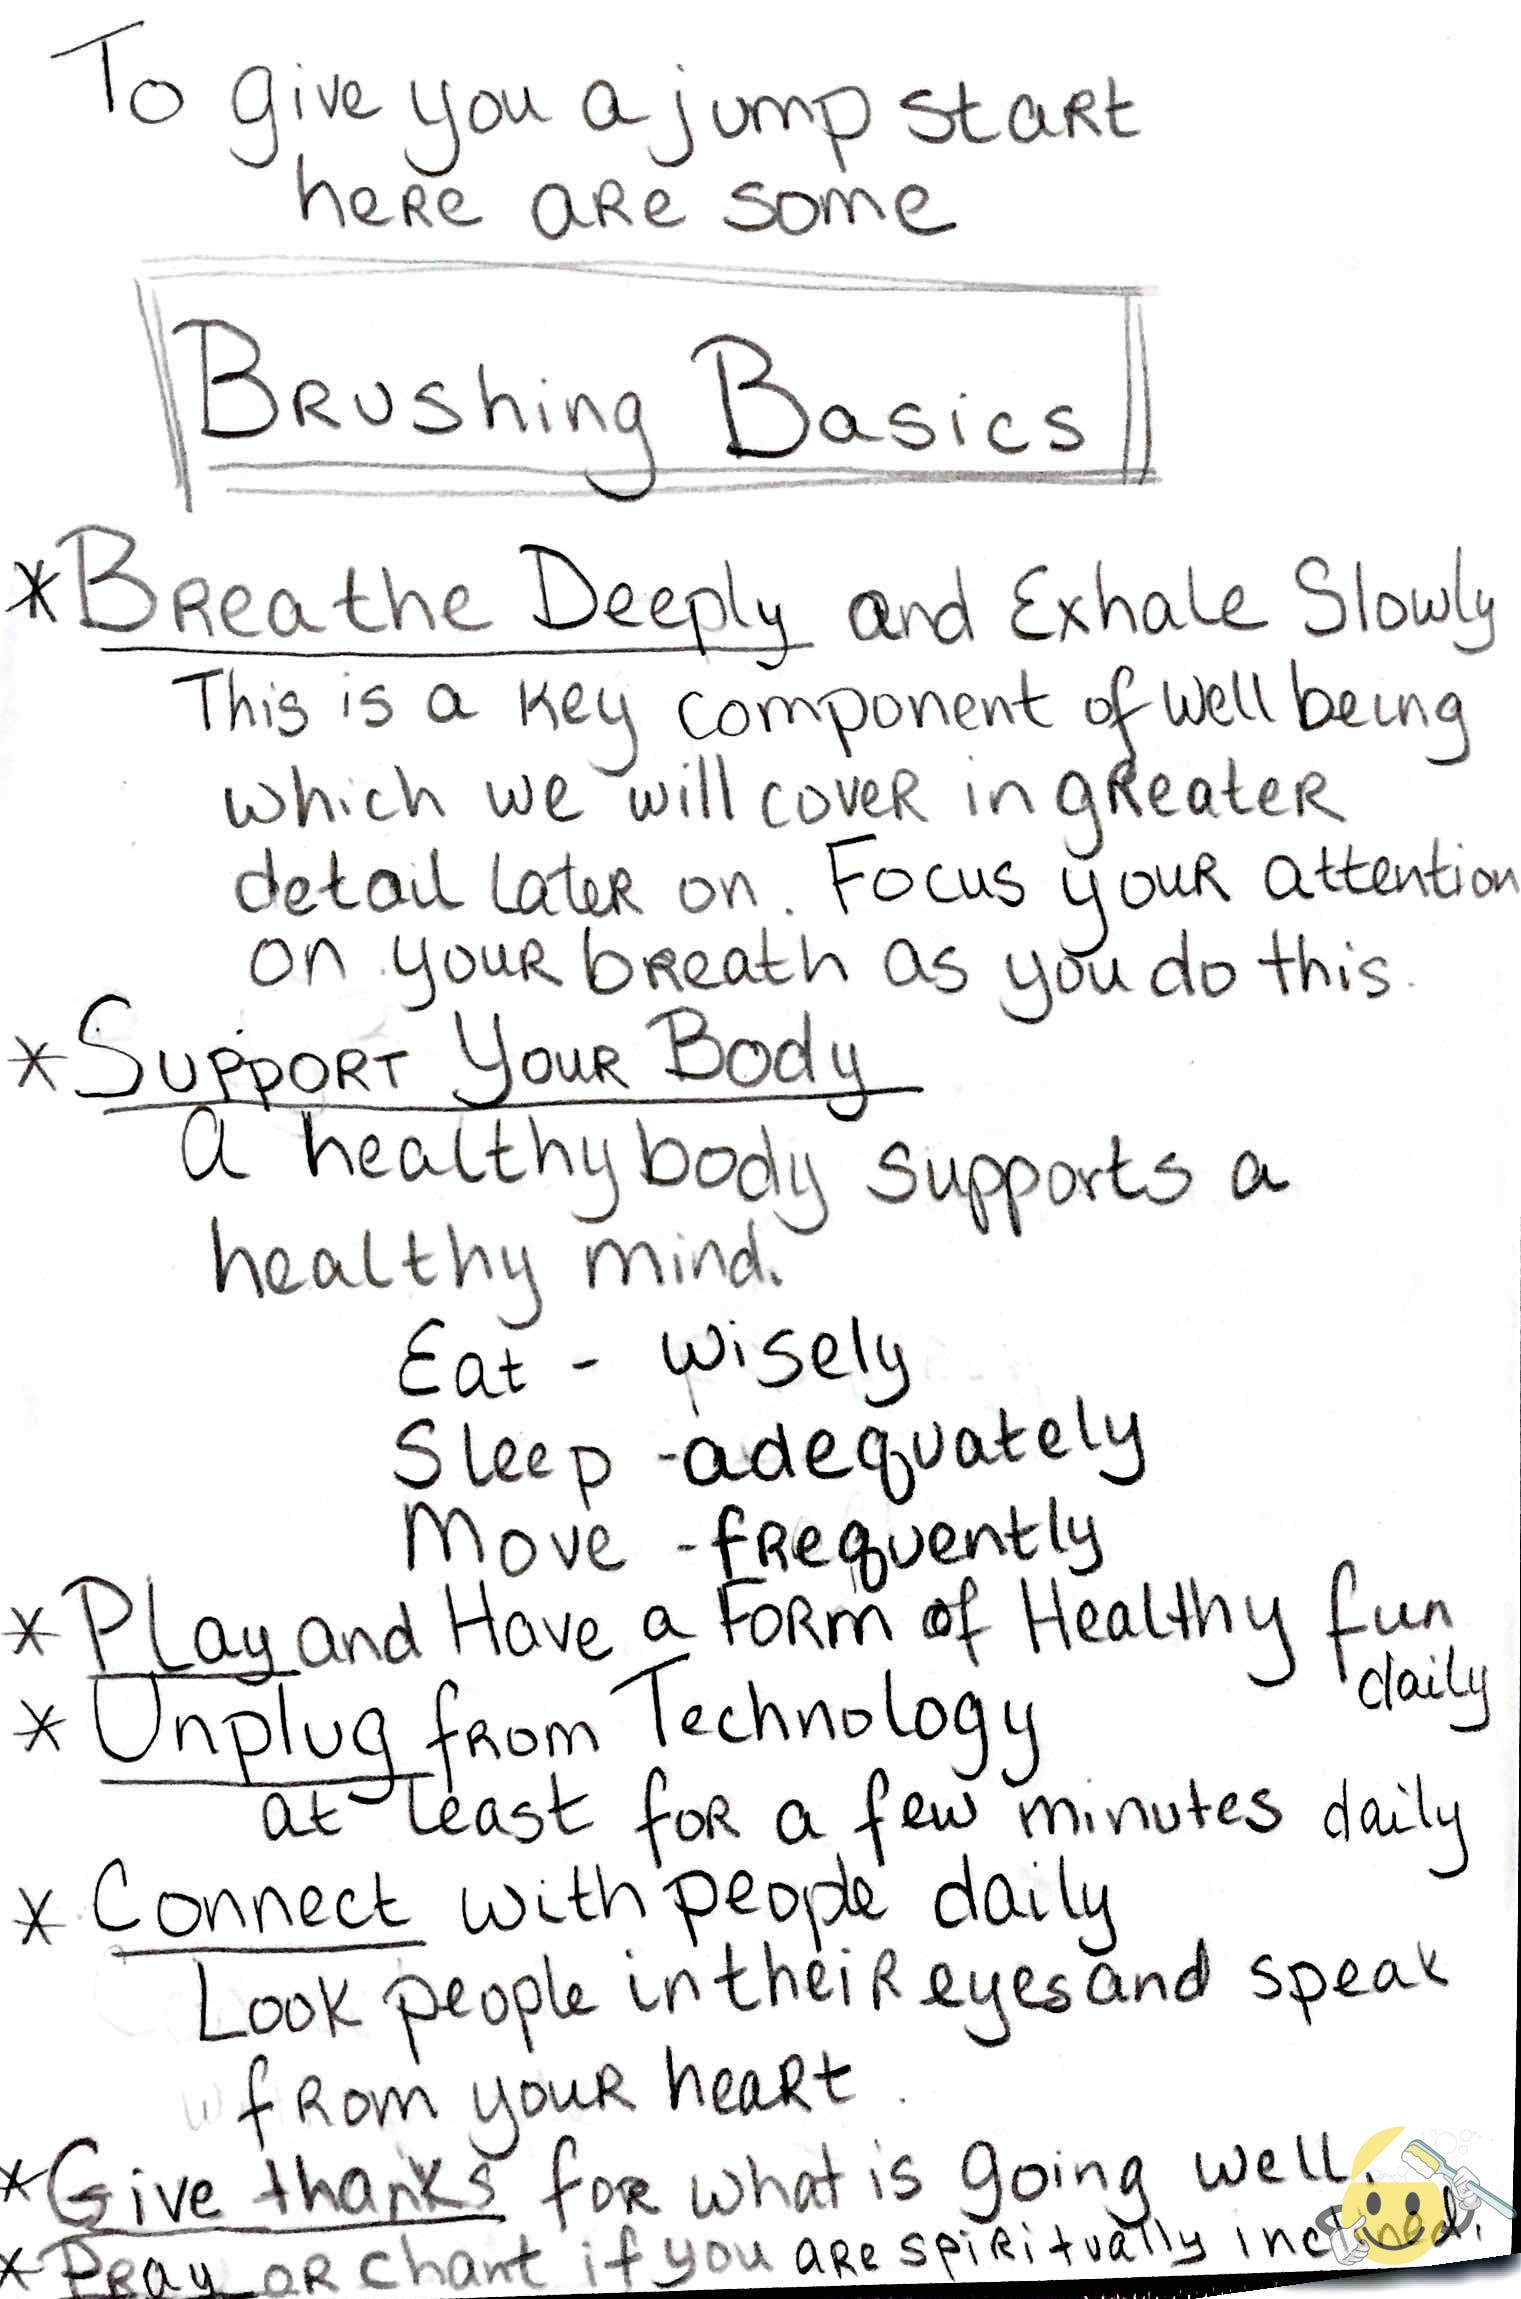 To give you a jump start
here are some
Brushing Basics
* Breathe Deeply and Exhale Slowly
This is a key component of well being
which we will cover in greater
detail later on. Focus your attention
on your breath as you do this.
* Support Your Body
A healthy body supports a
healthy mind.
Eat - wisely
Sleep - adequately
Move - frequently
* Play and Have a Form of Healthy fun
daily
* Unplug from Technology
at least for a few minutes daily
* Connect with people daily
Look people in their eyes and speak
from your heart.
* Give thanks for what is going well.
* Pray or chant if you are spiritually inclined.